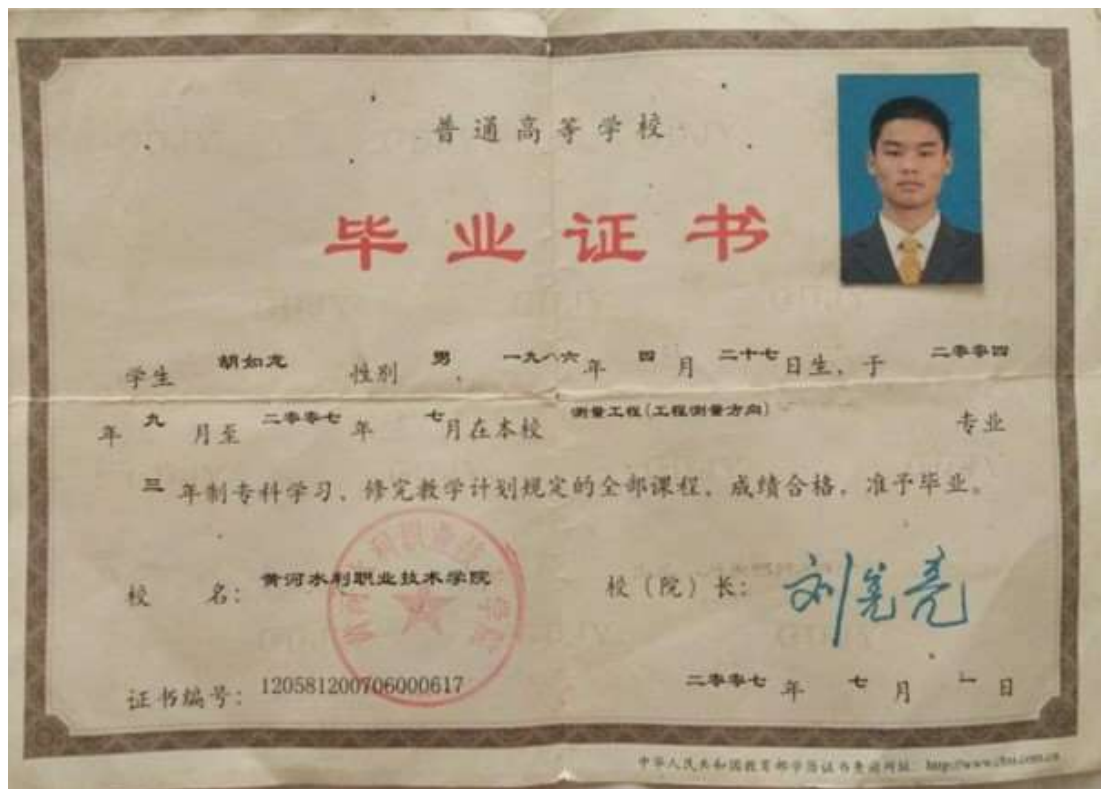 普通高等学校
毕业证书
学生 胡如龙 性别 男, 一九八六年 四月 二十七日生, 于 二零零四
年 九 月至 二零零七 年 七月在本校 测量工程(工程测量方向) 专业
三 年制专科学习、修完教学计划规定的全部课程, 成绩合格, 准予毕业。
校 名: 黄河水利职业技术学院 校(院)长: 刘宪亮
证书编号: 120581200706000617 二零零七 年 七 月 一 日
中华人民共和国教育部学历证书查询网址 http://www.chsi.com.cn